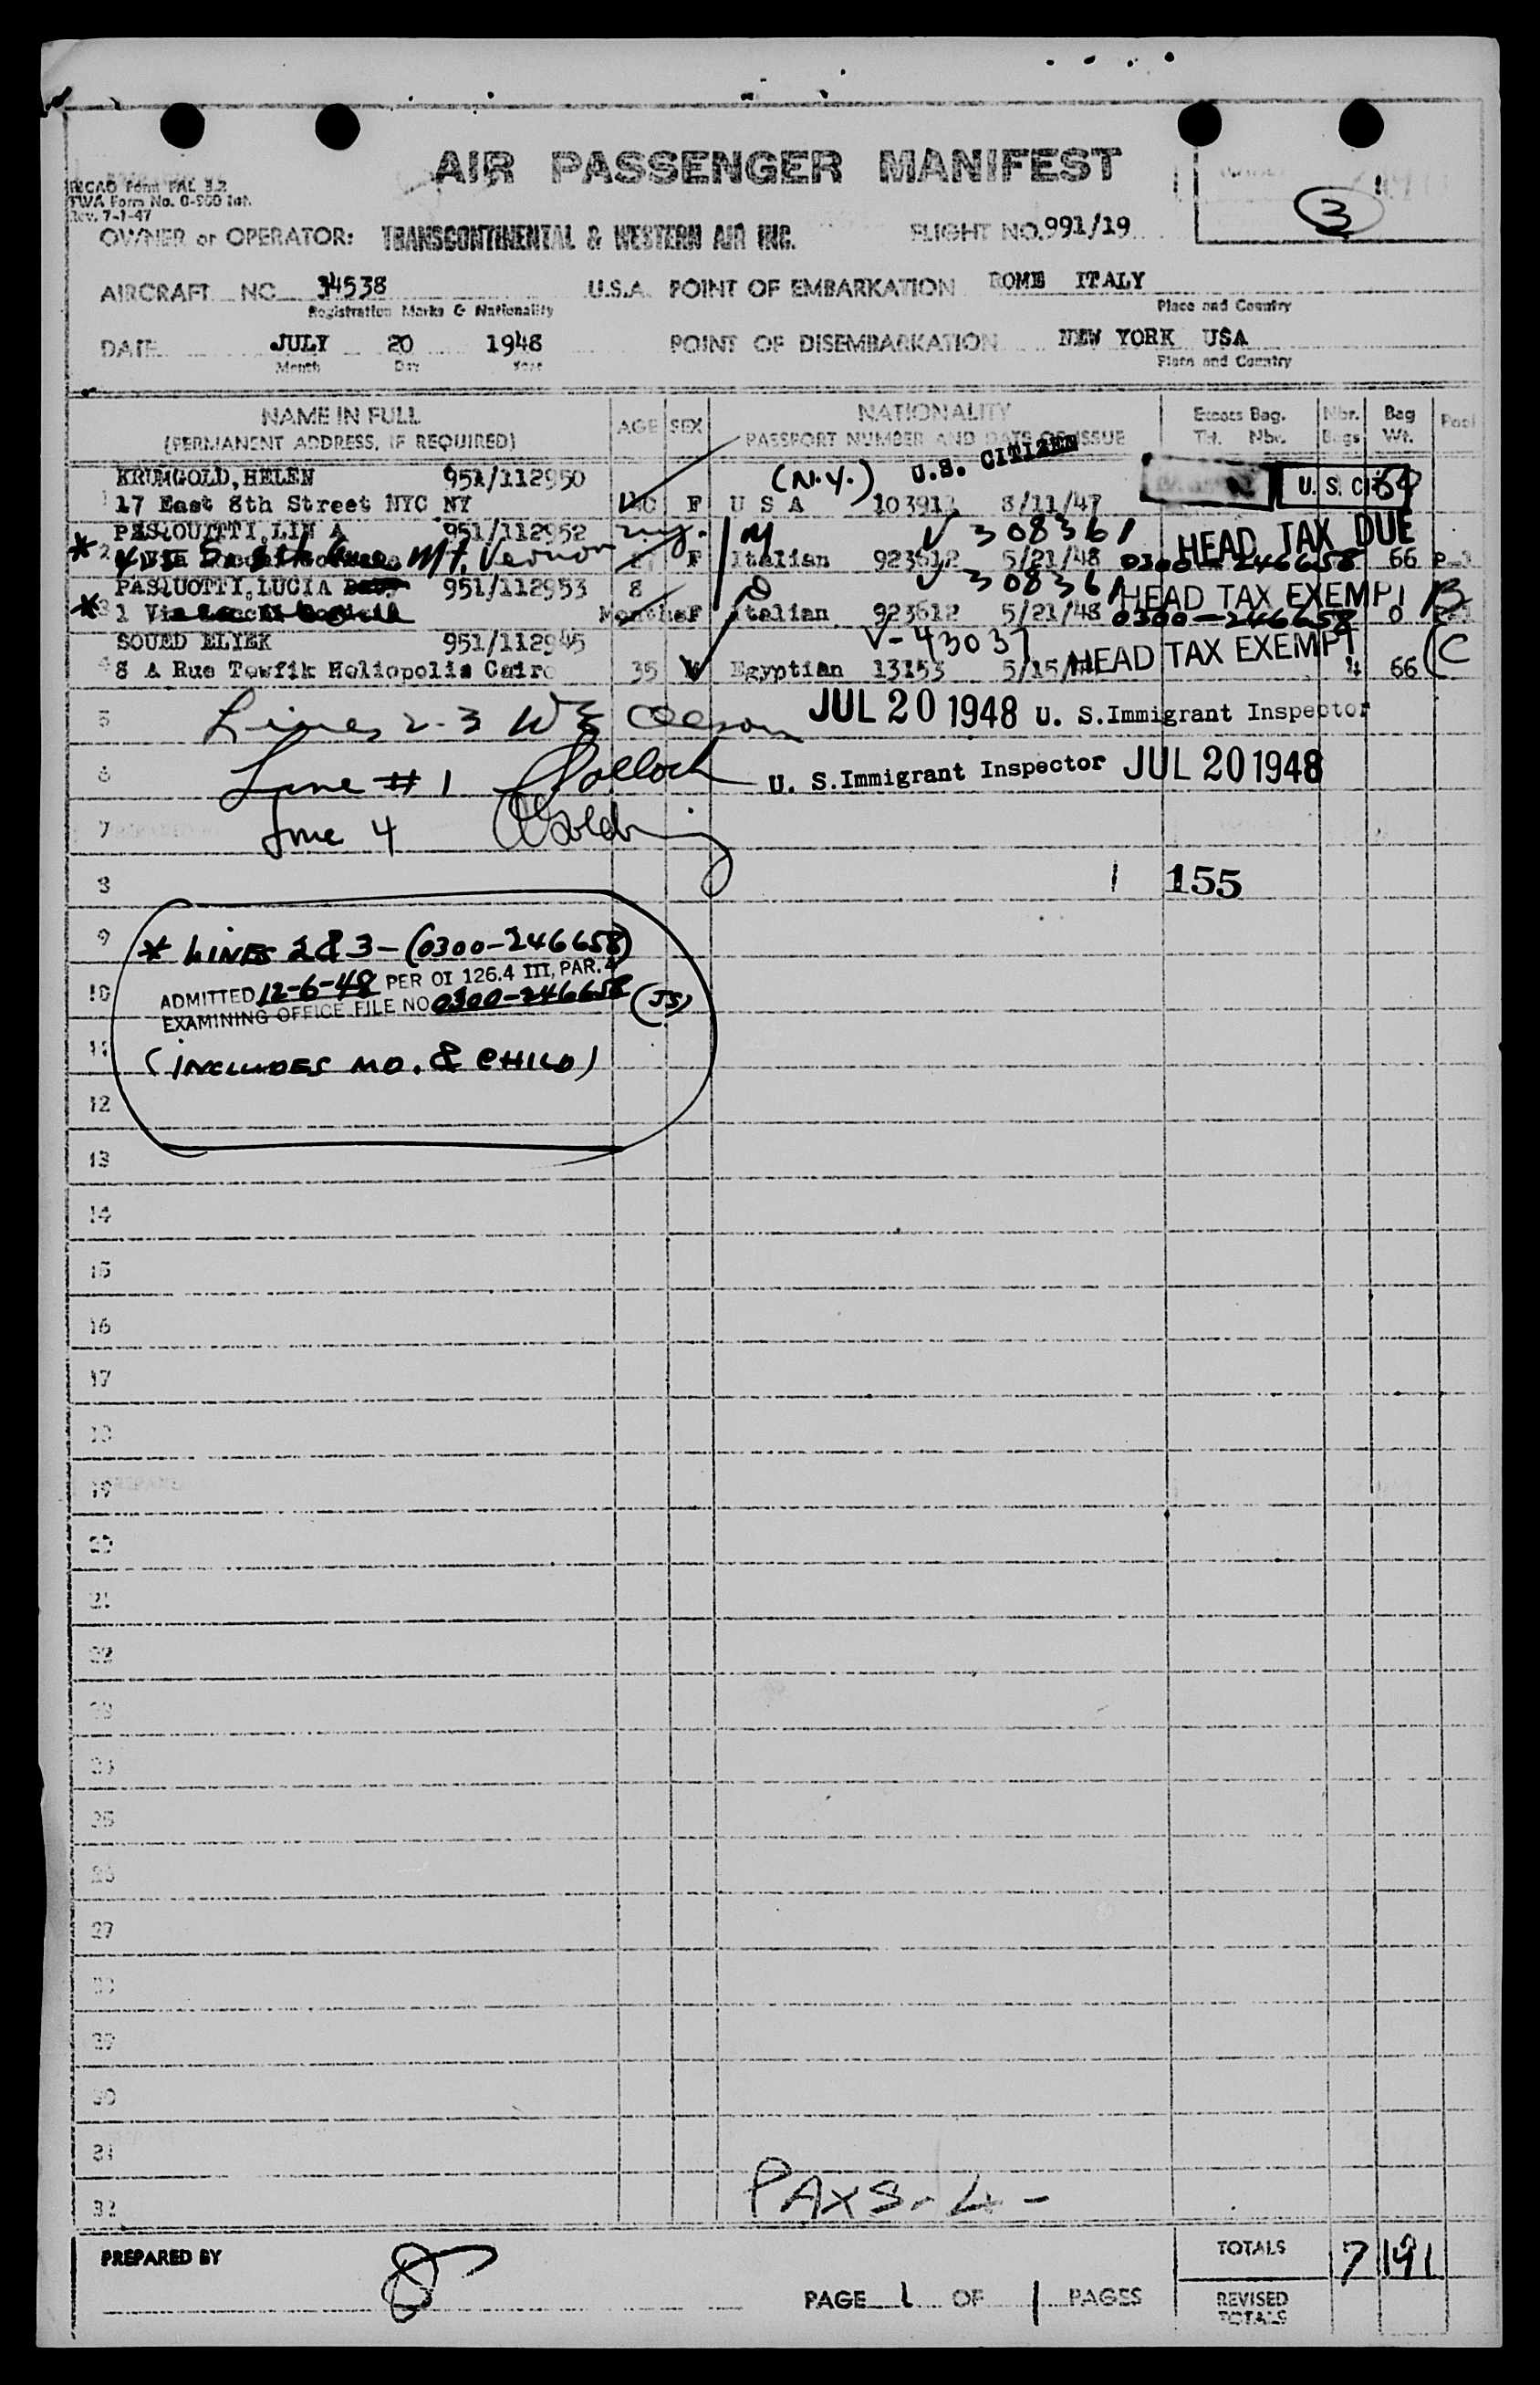 AIR PASSENGER MANIFEST
TWA Form No. 0-980 Int.
Rev. 7-1-47
3
OWNER or OPERATOR: TRANSCONTINENTAL & WESTERN AIR INC. FLIGHT NO. 991/19
AIRCRAFT NC 34538 U.S.A. POINT OF EMBARKATION ROME ITALY
Registration Marks & Nationality Place and Country
DATE JULY 20 1948 POINT OF DISEMBARKATION NEW YORK USA
Month Day Year Place and Country
NAME IN FULL AGE SEX NATIONALITY Excess Bag. Nbr. Bag Pool
(PERMANENT ADDRESS, IF REQUIRED) PASSPORT NUMBER AND DATE OF ISSUE Tkt. Nbr. Bags Wt.
KRUMGOLD, HELEN 951/112950 (N.Y.) U.S. CITIZEN
1 17 East 8th Street NYC NY F U S A 103912 8/11/47 U. S. CIT
PASQUOTTI, LIN A 951/112952 M V 308361 HEAD TAX DUE
* 2 8th Ave. Mt. Vernon N.Y. F Italian 923612 5/21/48 0300-246658 66
PASQUOTTI, LUCIA 951/112953 8 V 308361 HEAD TAX EXEMPT B
* 3 1 Via Months F Italian 923612 5/21/48 0300-246658 0
SOUED ELIEK 951/112945 V-43037 HEAD TAX EXEMPT
4 8 A Rue Tewfik Heliopolis Cairo 35 Egyptian 13153 5/15/ 4 66 C
5 Lines 2-3 JUL 20 1948 U. S. Immigrant Inspector
6 Line #1 Pollock U. S. Immigrant Inspector JUL 20 1948
7 Line 4
8 1 155
9 * LINES 2 & 3 - (0300-246658)
10 ADMITTED 12-6-48 PER OI 126.4 III, PAR. 4
EXAMINING OFFICE FILE NO 0300-246658 (JS)
11 (INCLUDES MO. & CHILD)
12
13
14
15
16
17
18
19
20
21
22
23
24
25
26
27
28
29
30
31
32 PAXS - 4 -
PREPARED BY TOTALS 7 191
PAGE 1 OF 1 PAGES REVISED
TOTALS